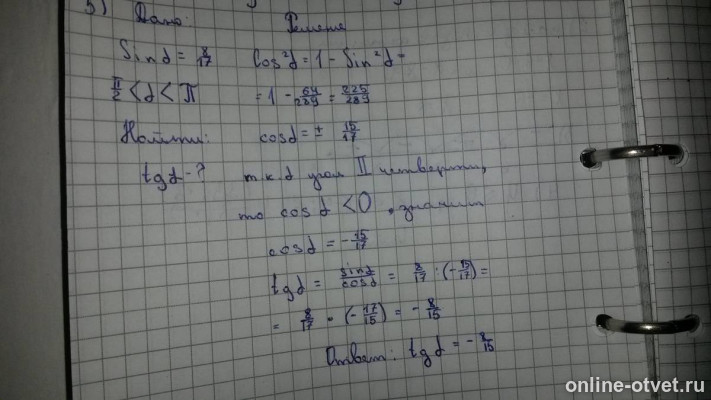 5) Дано: Решение
Sin α = 8/17 Cos²α = 1 - Sin²α =
π/2 < α < π = 1 - 64/289 = 225/289
Найти: cos α = ± 15/17
tg α - ? т.к. α угол II четверти,
то cos α < 0, значит
cos α = - 15/17
tg α = sin α/cos α = 8/17 : (- 15/17) =
= 8/17 · (- 17/15) = - 8/15
Ответ: tg α = - 8/15
online-otvet.ru